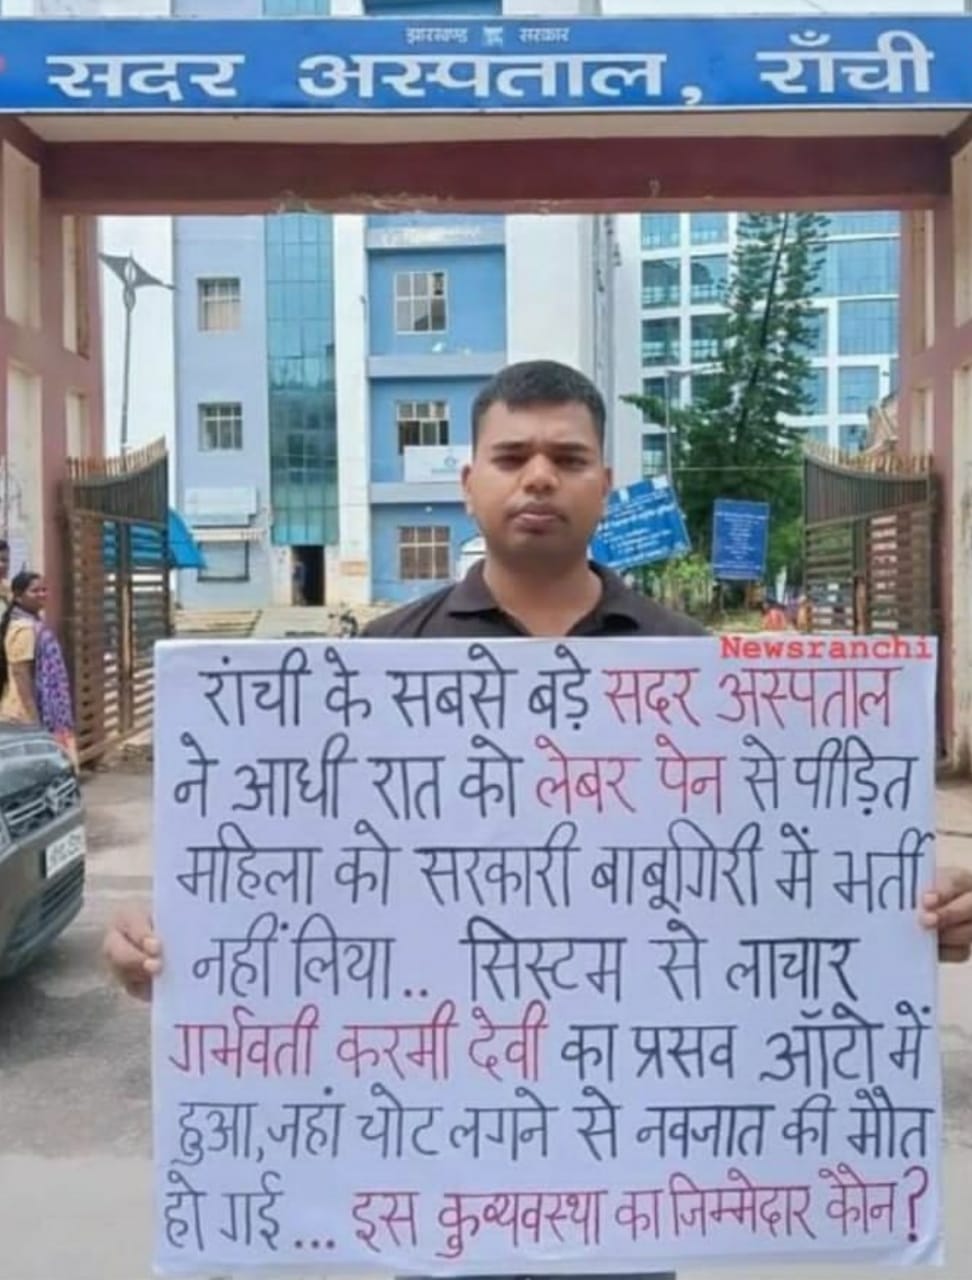 झारखण्ड सरकार
सदर अस्पताल, राँची
Newsranchi
रांची के सबसे बड़े सदर अस्पताल
ने आधी रात को लेबर पेन से पीड़ित
महिला को सरकारी बाबूगिरी में भर्ती
नहीं लिया.. सिस्टम से लाचार
गर्भवती करमी देवी का प्रसव ऑटो में
हुआ,जहां चोट लगने से नवजात की मौत
हो गई... इस कुव्यवस्था का जिम्मेदार कौन?